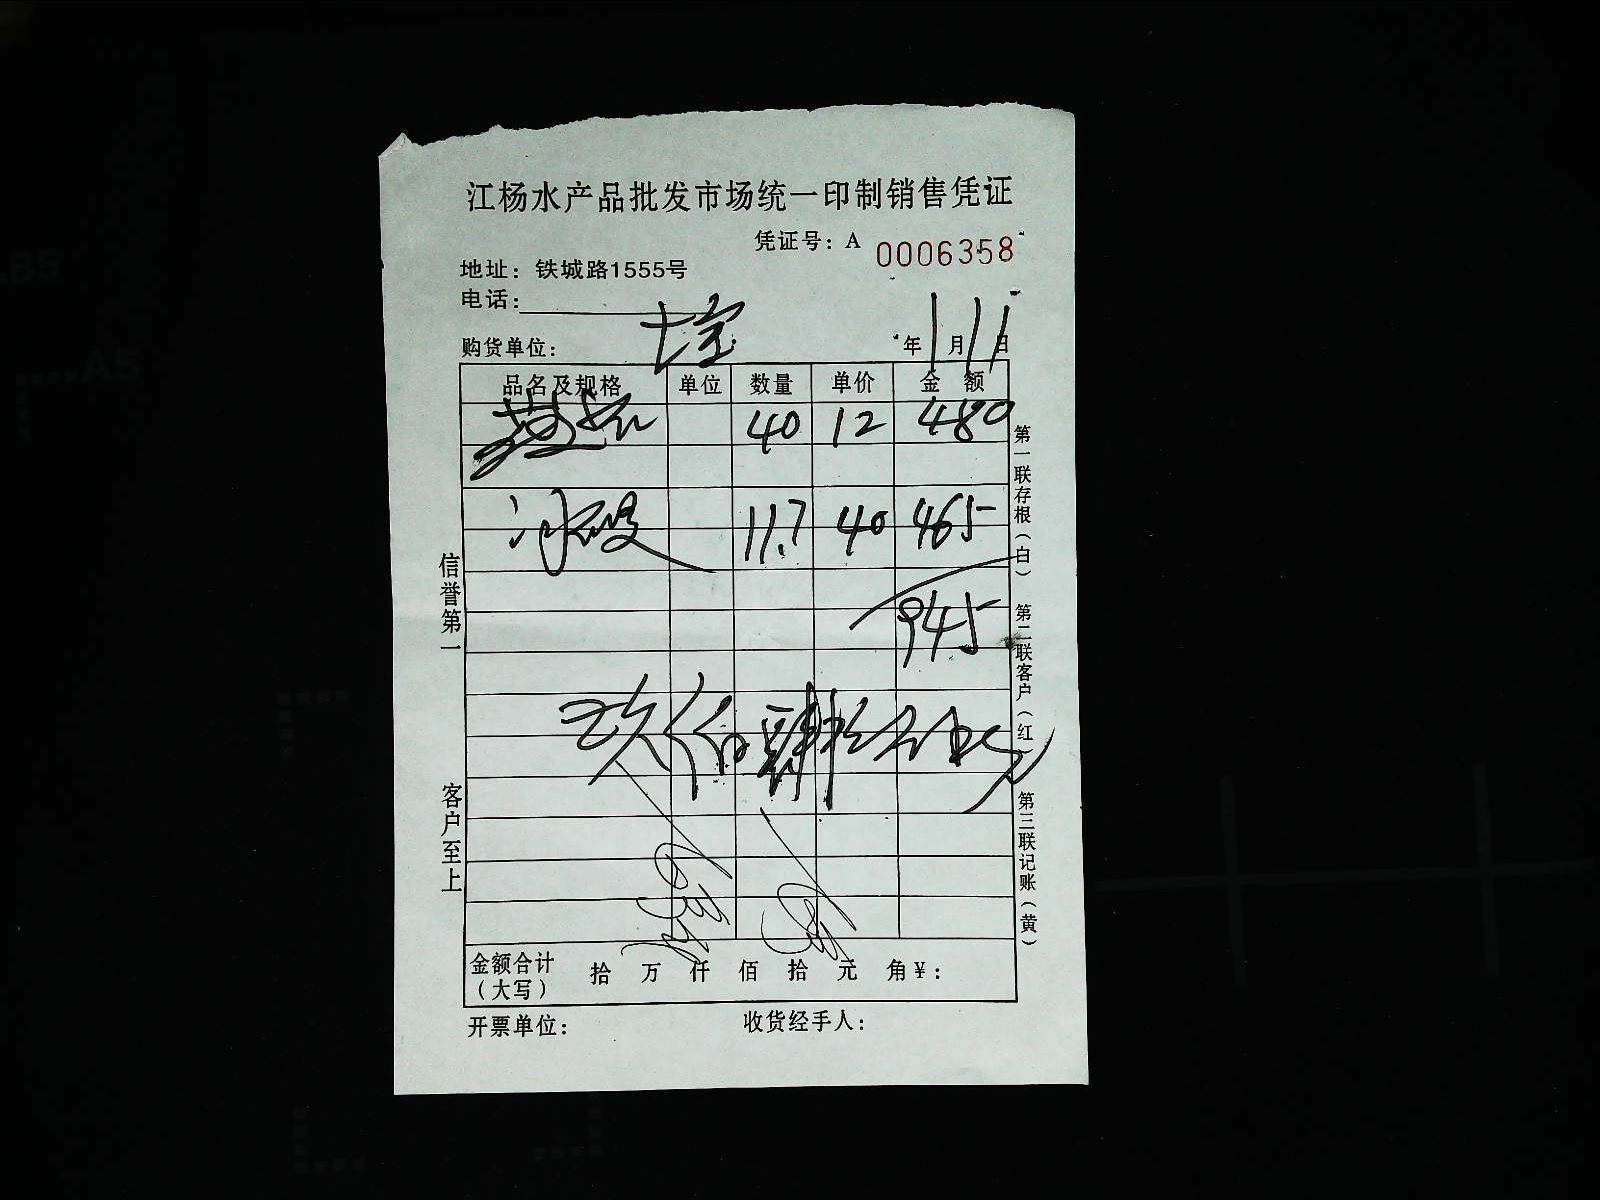 江杨水产品批发市场统一印制销售凭证
凭证号：A 0006358
地址：铁城路1555号
电话：
购货单位： 七宝 年 1 月 11 日
品名及规格 单位 数量 单价 金 额
40 12 480
11.7 40 465
945
玖佰肆拾
金额合计（大写） 拾 万 仟 佰 拾 元 角￥：
开票单位： 收货经手人：
信誉第一
客户至上
第一联存根（白） 第二联客户（红） 第三联记账（黄）